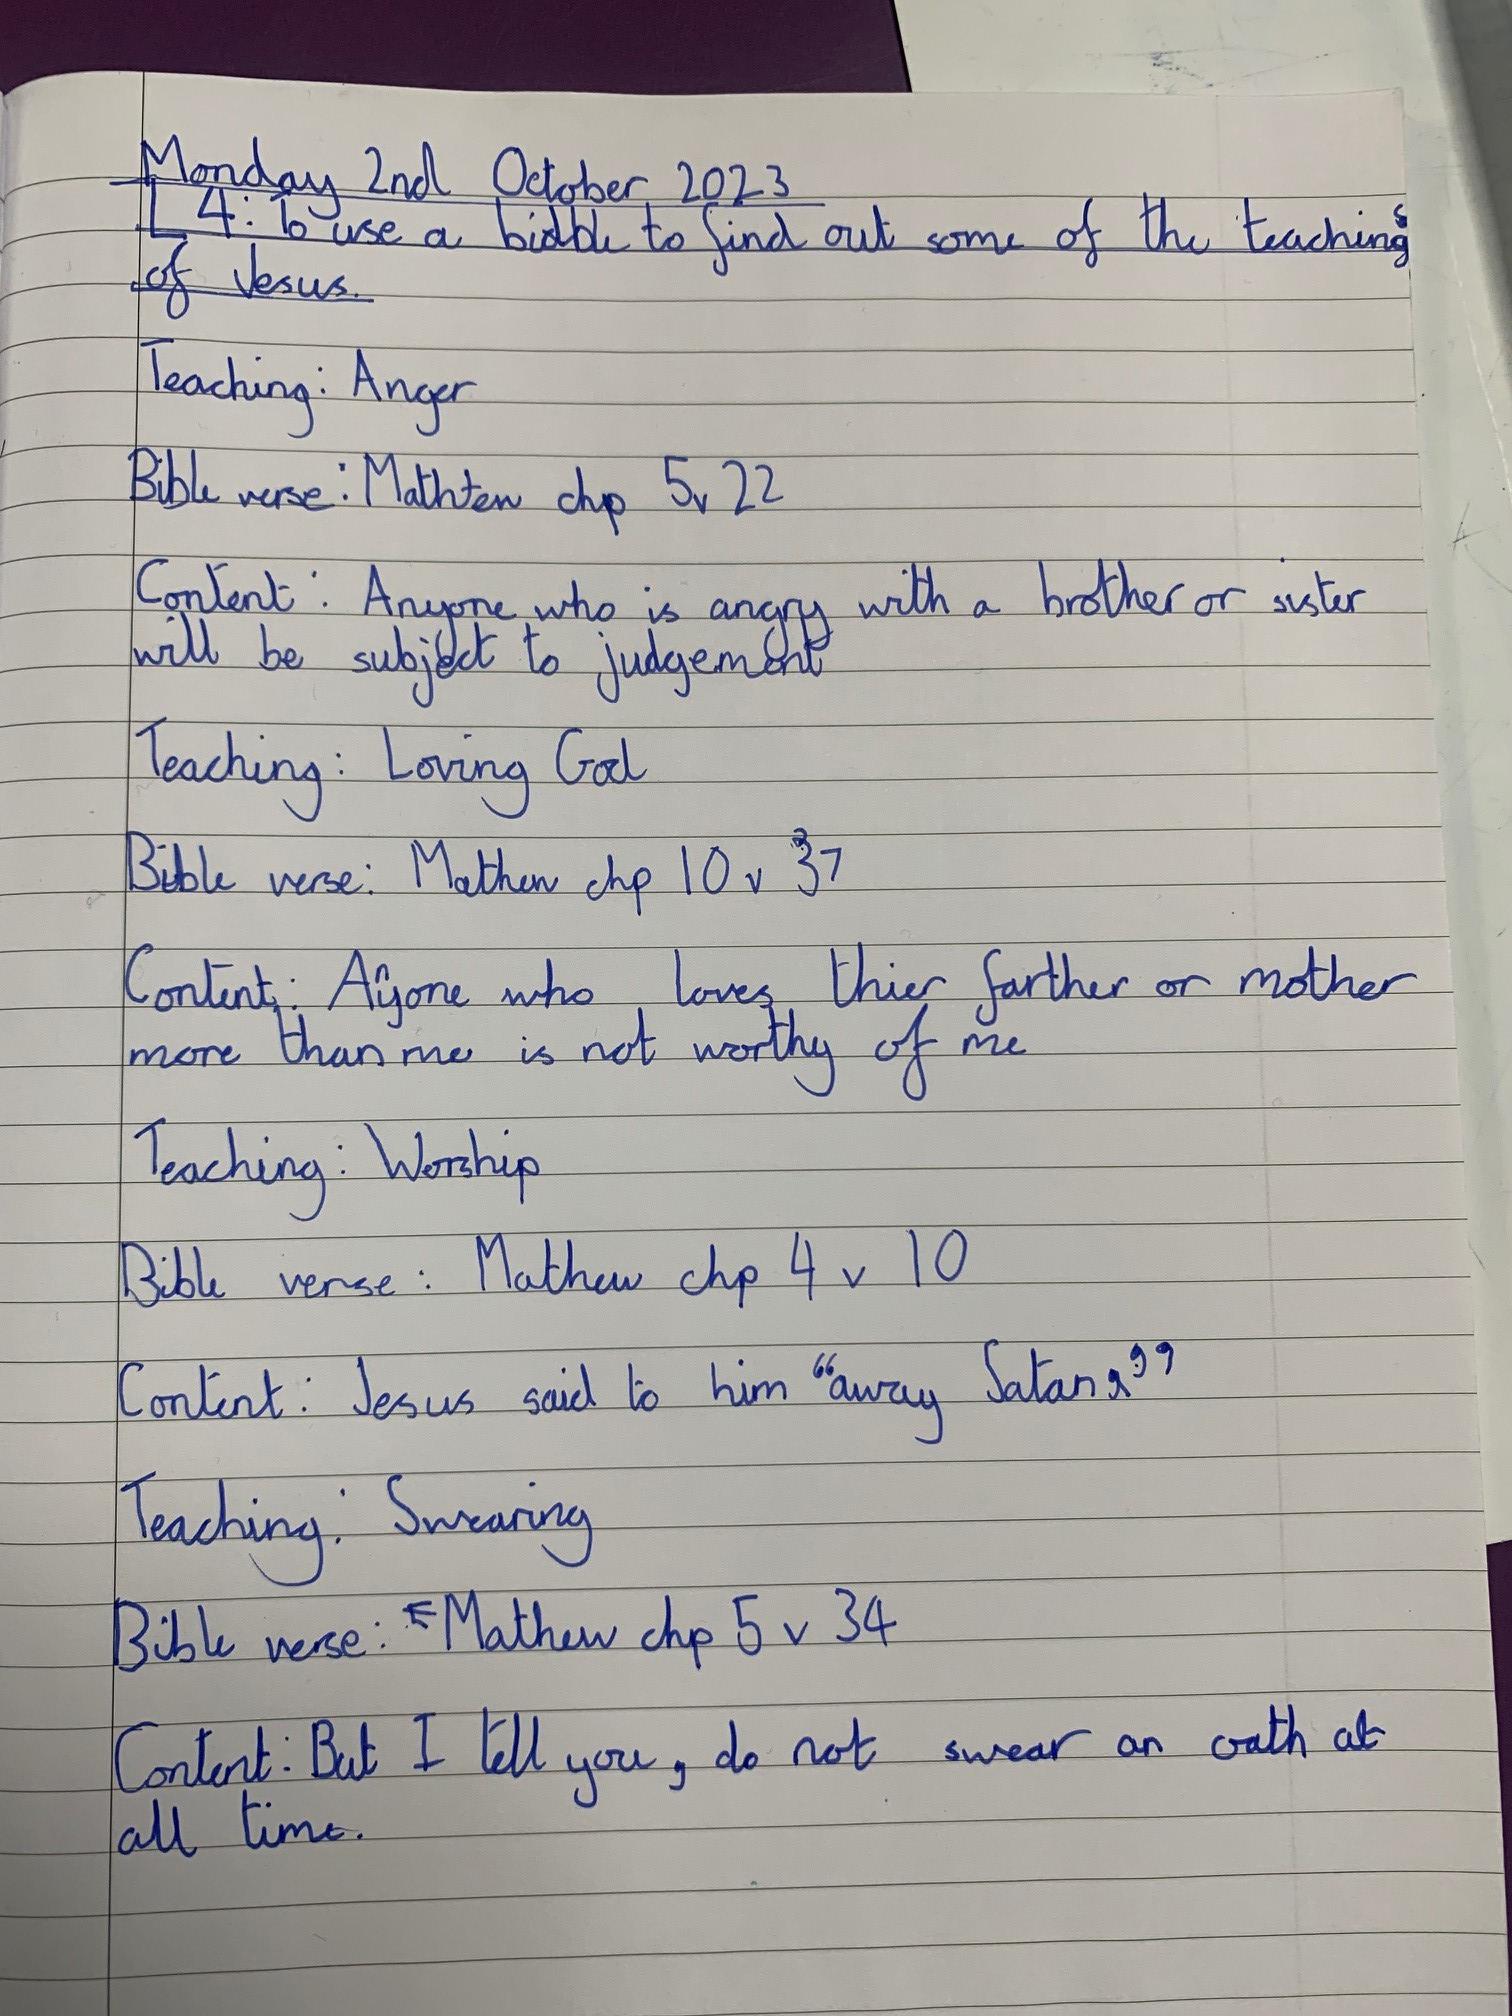 Monday 2nd October 2023
L 4: To use a bible to find out some of the teachings
of Jesus.
Teaching: Anger
Bible verse: Mathtew chp 5v 22
Content: Anyone who is angry with a brother or sister
will be subject to judgement
Teaching: Loving God
Bible verse: Mathew chp 10 v 37
Content: Anyone who loves thier farther or mother
more than me is not worthy of me
Teaching: Worship
Bible verse: Mathew chp 4 v 10
Content: Jesus said to him "away Satan"
Teaching: Swearing
Bible verse: Mathew chp 5 v 34
Content: But I tell you, do not swear an oath at
all time.